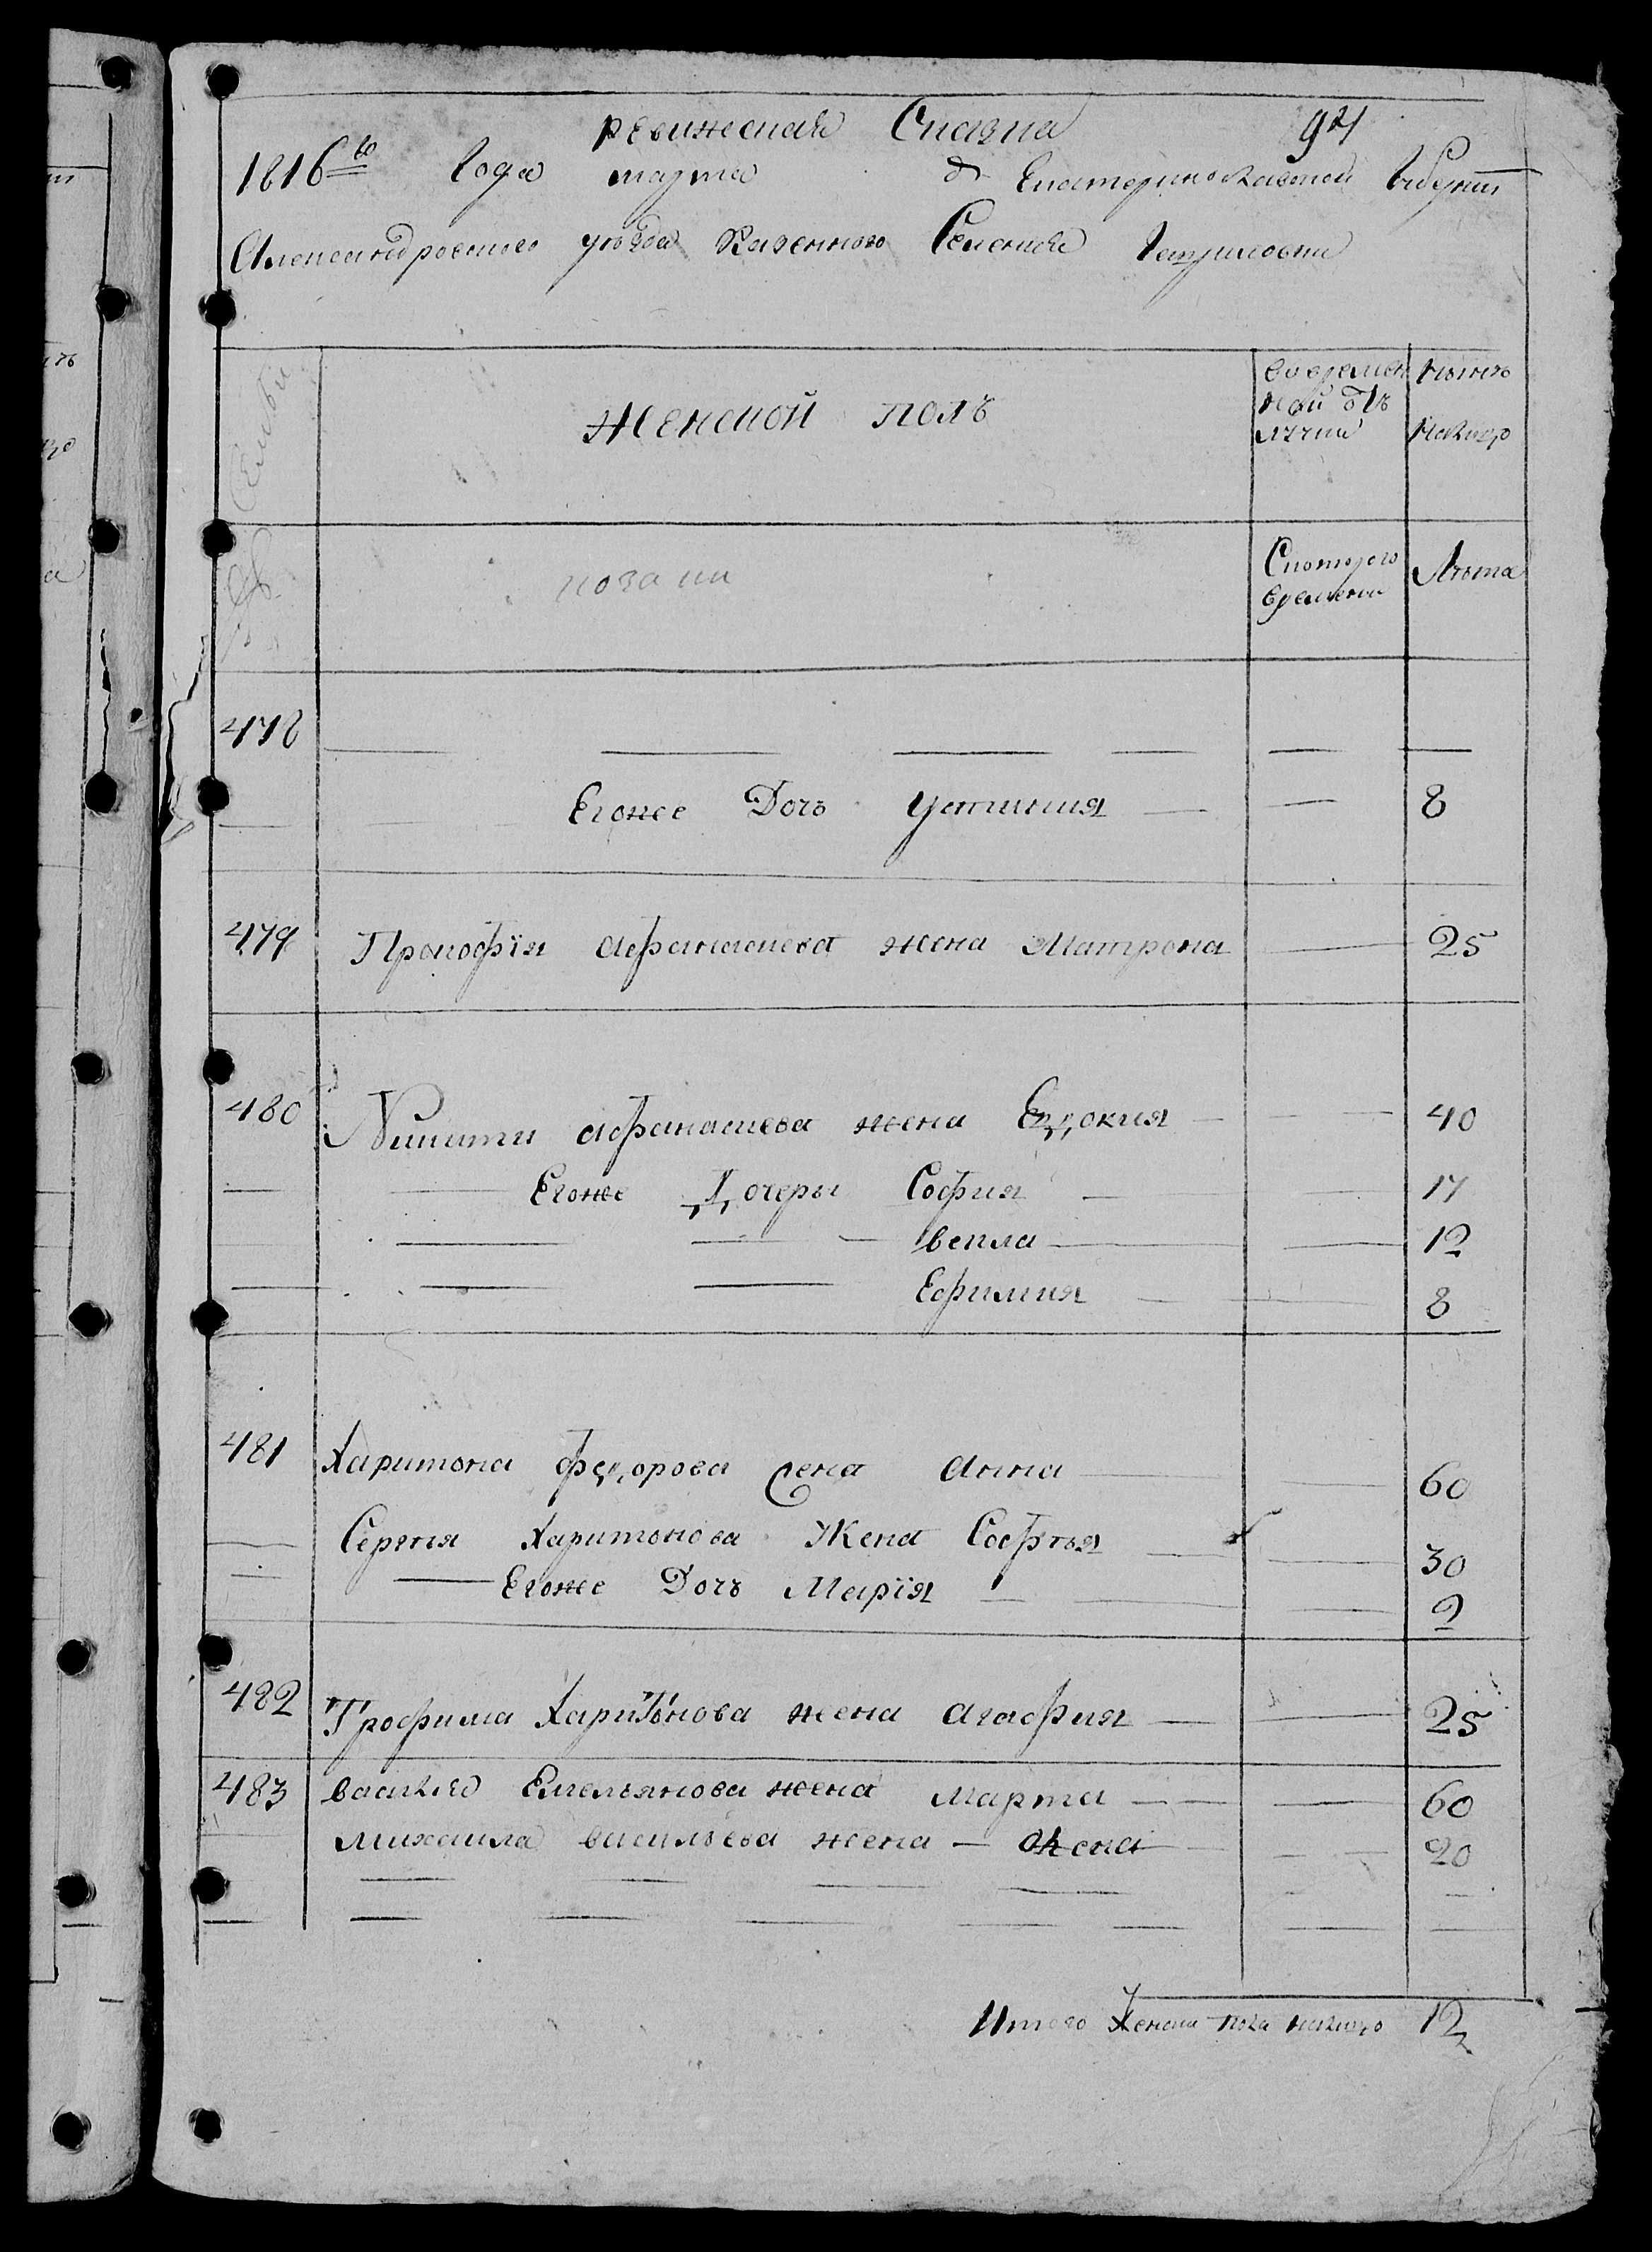 921
ревижская Сказка
1816го года марта д Екатеринославской Губерни
Александровского уезда Казенного Селения
Семьи
Женской полъ
во временной отлучки
Ныне
налицо
казаки
С которого времени
Лета
478
Егоже Дочъ Устиния — — 8
479 Прокофїя афанасиева жена Матрона — 25
480 Никити афанасиева жена Евдокия — — 40
Егоже Дочеры София — — 17
Векла — — 12
Ефимия — — 8
481 Харитона федорова жена анна — — 60
Сергия Харитонова Жена Софья — — 30
Егоже Дочъ Марїя — — 2
482 Трофима Харитонова жена агафия — — 25
483 василия Емельянова жена марта — — 60
михаила васильева жена — — — 20
Итого Женска пола налицо 12